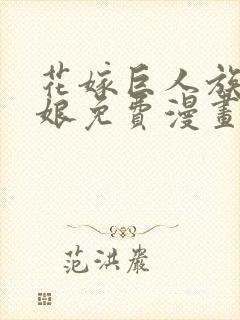 花嫁巨人族
娘免費漫畫
范洪巖